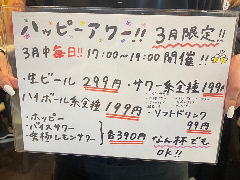 ハッピーアワー!! 3月限定!!
3月中毎日!! 17:00〜19:00 開催!!
・生ビール 299円 ・サワー系全種 199円
ハイボール系全種 199円 ・ソフトドリンク 99円
・ホッピー
・バイスサワー
・究極レモンサワー
各390円
なん杯でもOK!!